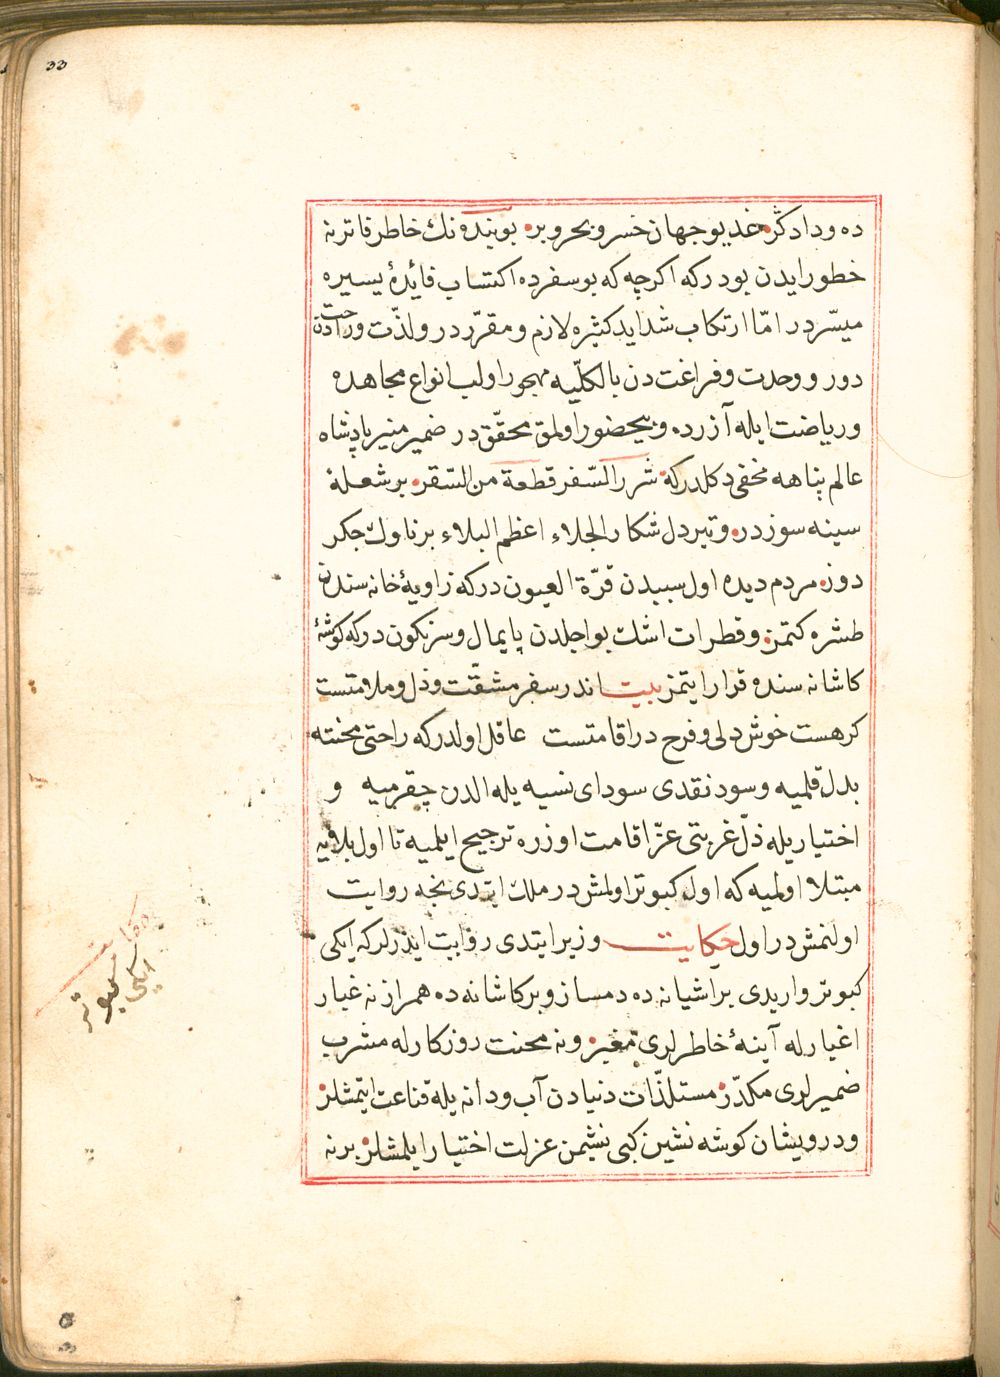 33
ده و دادكر خديو جهان خسرو بحر و بر بو بنده نك خاطر فاترنه
خطور ايدن بودركه اكرچه كه بو سفرده اكتساب فائدهٔ يسيره
ميسّردر امّا ارتكاب شدايد كثيره لازم و مقرّردر و لذّت و راحتدن
دور و وحدت و فراغت دن بالكلّيه مهجور اولب انواع مجاهده
و رياضت ايله آزرده و بيحضور اولمق محقّق در ضمير منير پادشاه
عالم پناهه مخفى دكلدركه شرر السّفر قطعة من السّقر بر شعلهٔ
سينه سوزدر و تير دل شكار الجلاء اعظم البلاء بر ناوك جكر
دوز مردم ديده اول سببدن قرّة العيون دركه زاويهٔ خانه سندن
طشره كتمز و قطرات اشك بو اجلدن پايمال و سرنكون دركه كوشهٔ
كاشانه سنده قرار ايتمز بيت اندر سفر مشقّت و ذل و ملامتست
كر هست خوش دلى و فرح در اقامتست عاقل اولدركه راحتى محنته
بدل قلميه و سود نقدى سوداى نسيه يله الدن چقرميه و
اختياريله ذلّ غربتى عزّ اقامت اوزره ترجيح ايلميه تا اول بلايه
مبتلا اولميه كه اول كبوتر اولمش در ملك ايتدى نجه روايت
اولنمش در اول حكايت وزير ايتدى روايت ايدرلركه ايكى
كبوتر واريدى بر اشيانه ده دمساز و بر كاشانه ده همراز نه غبار
اغيارله آينهٔ خاطرلرى متغيّر و نه محنت روزكارله مشرب
ضميرلرى مكدّر مستلذّات دنيادن آب و دانه يله قناعت ايتمشلر
و درويشان كوشه نشين كبى نشيمن عزلت اختيار ايلمشلر برنه
ايكى
كبوتر